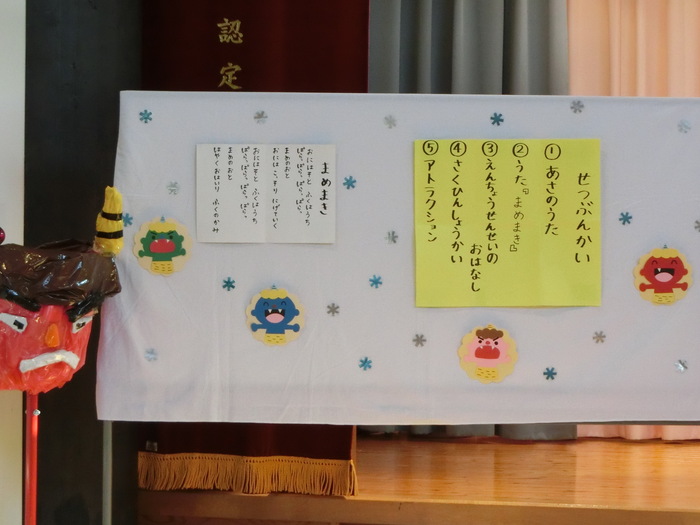 認定
せつぶんかい
①あさのうた
②うた『まめまき』
③えんちょうせんせいの
おはなし
④さくひんしょうかい
⑤アトラクション
まめまき
おにはそと ふくはうち
ぱらっぱらっ ぱらっぱらっ
まめのおと
おには こっそり にげていく
おにはそと ふくはうち
ぱらっぱらっ ぱらっぱらっ
まめのおと
はやくおはいり ふくのかみ